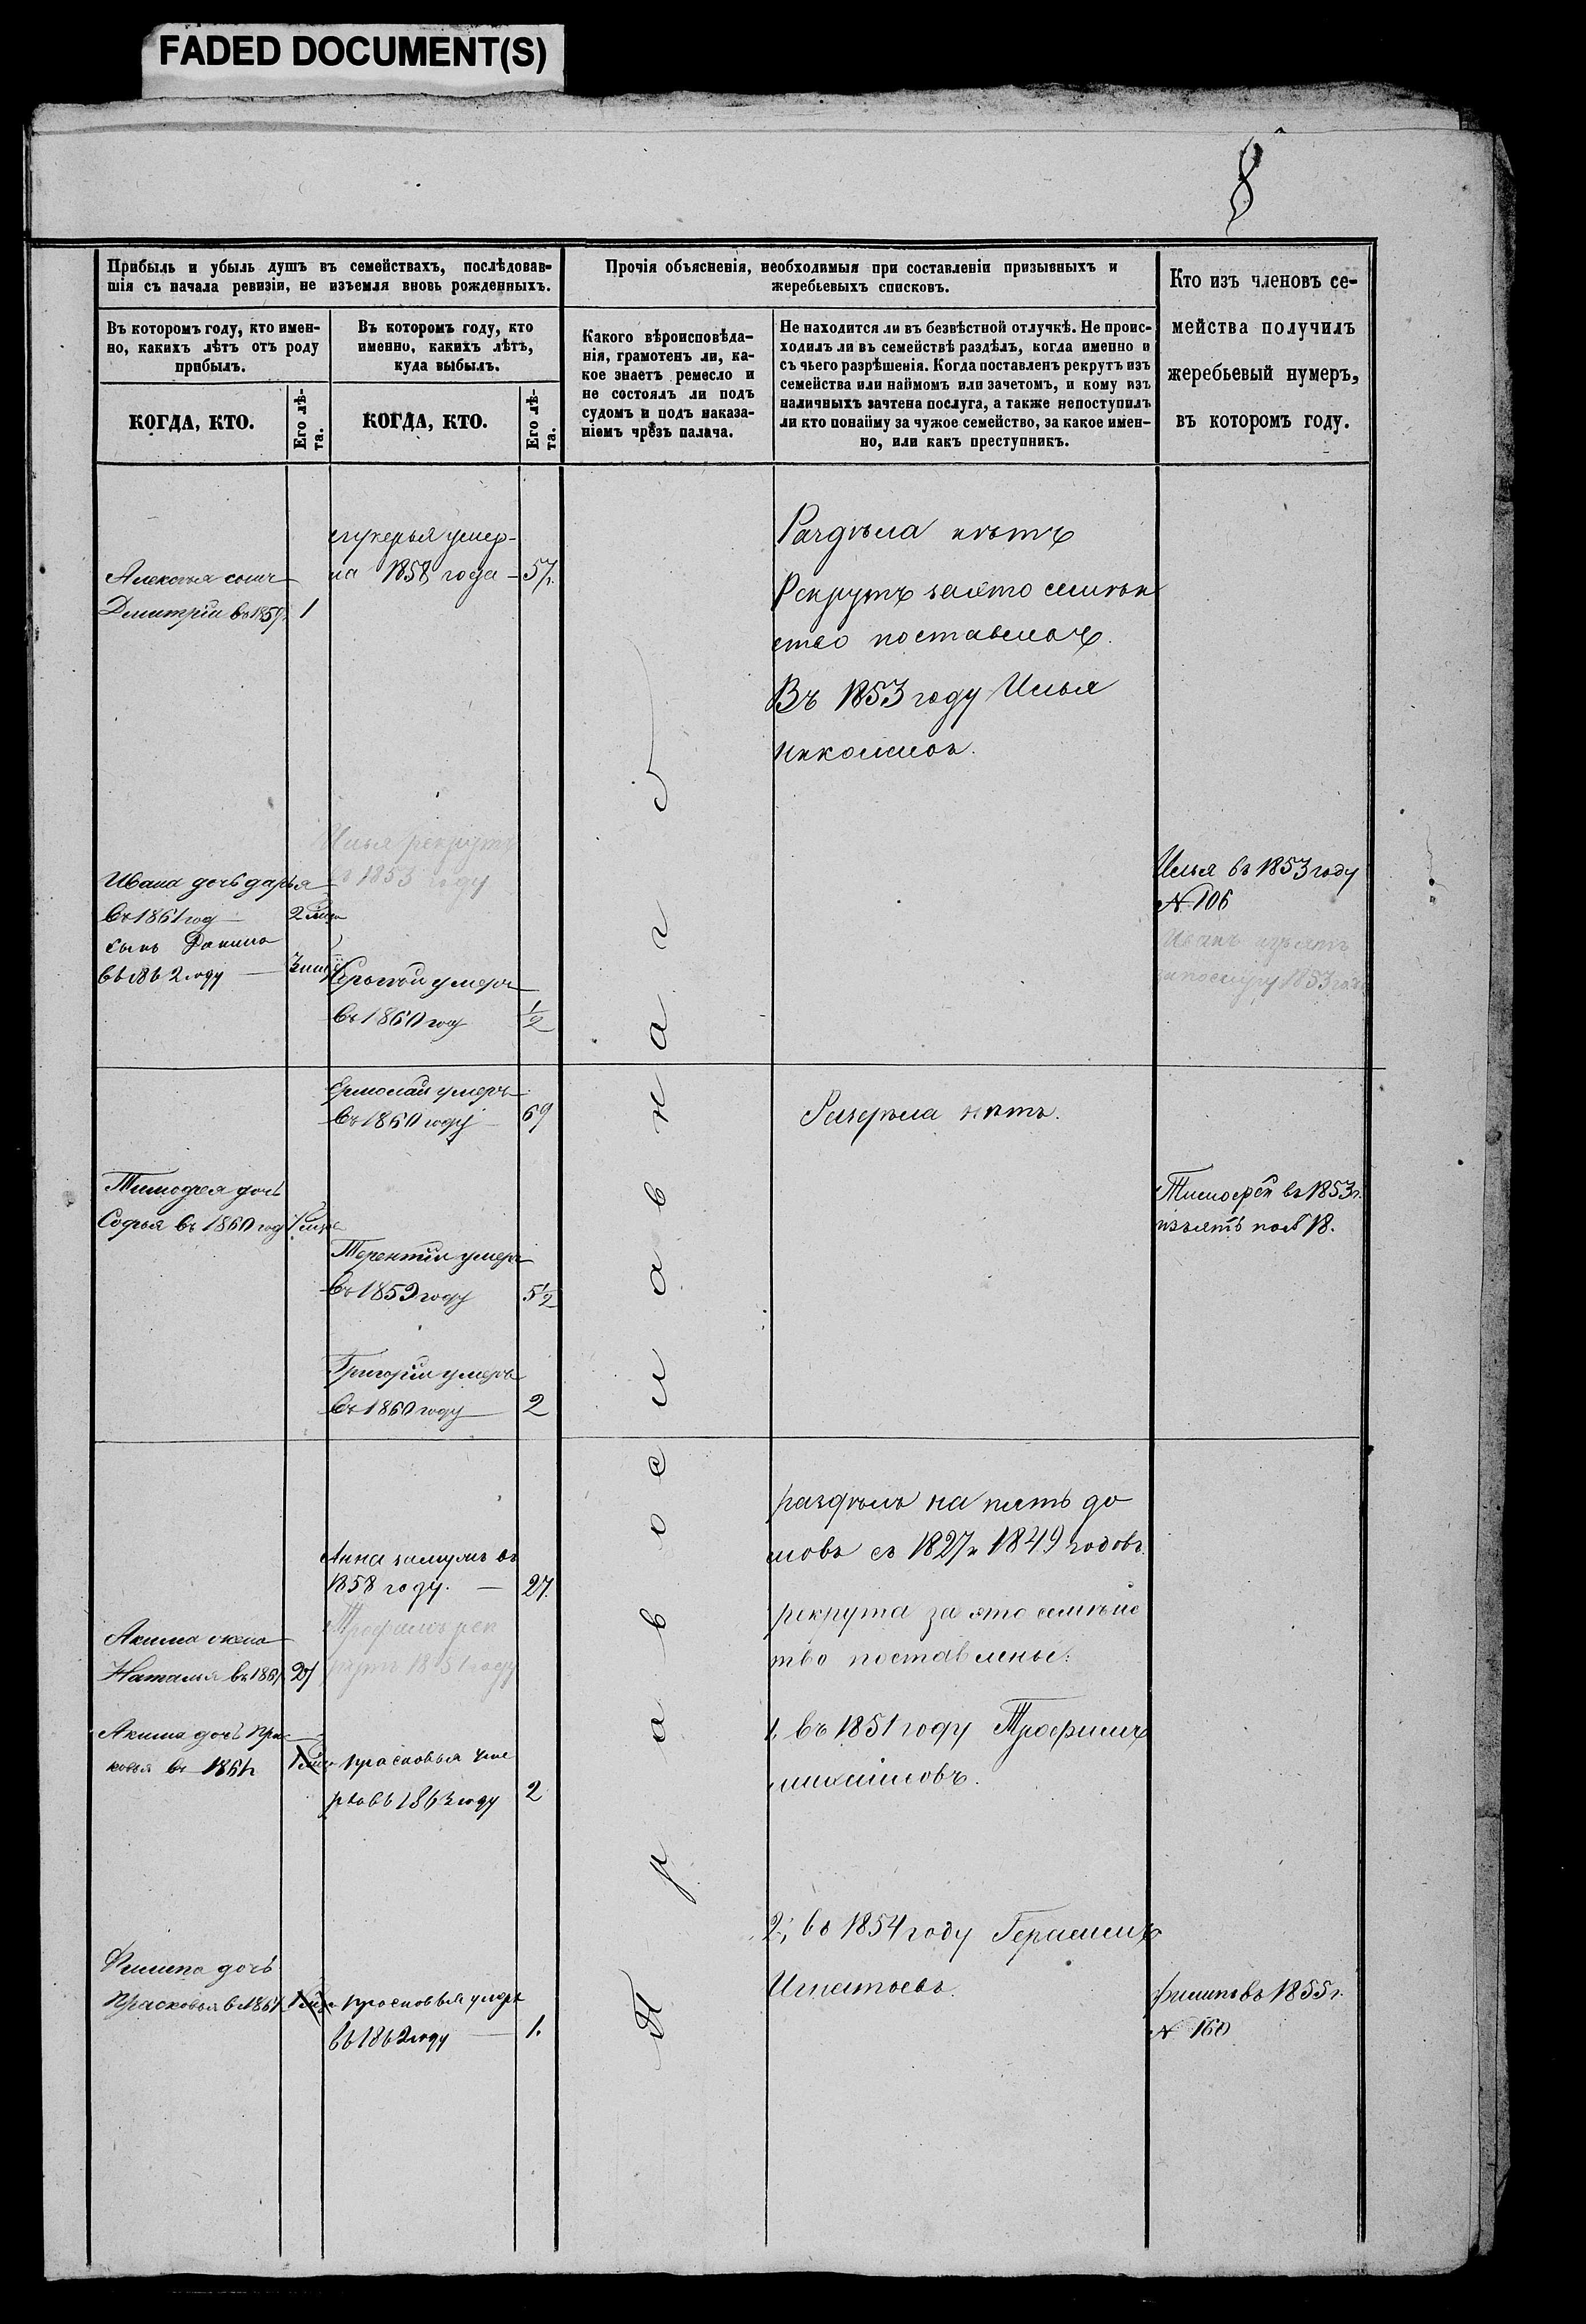 FADED DOCUMENT(S)
8
Прибыль и убыль душъ въ семействахъ, послѣдовав-
шія съ начала ревизіи, не изъемля вновь рожденныхъ.
Въ которомъ году, кто имен-
но, какихъ лѣтъ отъ роду
прибылъ.
КОГДА, КТО.
Его лѣ-
та.
Въ которомъ году, кто
именно, какихъ лѣтъ,
куда выбылъ.
КОГДА, КТО.
Его лѣ-
та.
Прочія объясненія, необходимыя при составленіи призывныхъ и
жеребьевыхъ списковъ.
Какого вѣроисповѣда-
нія, грамотенъ ли, ка-
кое знаетъ ремесло и
не состоялъ ли подъ
судомъ и подъ наказа-
ніемъ чрезъ палача.
Не находится ли въ безвѣстной отлучкѣ. Не проис-
ходилъ ли въ семействѣ раздѣлъ, когда именно и
съ чьего разрѣшенія. Когда поставленъ рекрутъ изъ
семейства или наймомъ или зачетомъ, и кому изъ
наличныхъ зачтена послуга, а также непоступилъ
ли кто понайму за чужое семейство, за какое имен-
но, или какъ преступникъ.
Кто изъ членовъ се-
мейства получилъ
жеребьевый нумеръ,
въ которомъ году.
Алексѣя сынъ
Дмитрій въ 1859г. 1
умер-
ла 1858 года 57.
Раздѣла нѣтъ
Рекрутъ заэто семѣй
ство поставленъ.
Въ 1853 году Илья
Илья рекрутъ
въ 1853 году
Ивана дочь дарья
въ 1861 год 2
сынъ Данило
въ 1862 году
умеръ
въ 1860 году 1/2
Илья въ 1853 году
№ 106
Иванъ изъятъ
запослугу 1853 года
Ермолай умеръ
въ 1860 году 69
Раздѣла нѣтъ.
Тимофея дочь
Софья въ 1860 год 1
Терентій умеръ
въ 1859 году 5 1/2
Григорій умеръ
въ 1860 году 2
Тимофей въ 1853 г.
изъятъ 18.
раздѣлъ на пять до
мовъ съ 1827 и 1849 годовъ.
Анна замужъ въ
1858 году. 27.
Трофимъ рек
рутъ 1851 году
рекрута за это семѣйс
тво поставлены:
Акима жена
Наталья въ 1861 21
Акима дочь Прас
ковья въ 1861 1
прасковья уме
рла въ 1863 году 2
1, въ 1851 году Трофимъ
михайловъ.
2; въ 1854 году Герасимъ
Игнатьевъ.
Филипа дочь
Прасковья въ 1861 1
прасковья умерла
въ 1862 году 1.
филипъ въ 1855 г.
№ 160
Православнаго